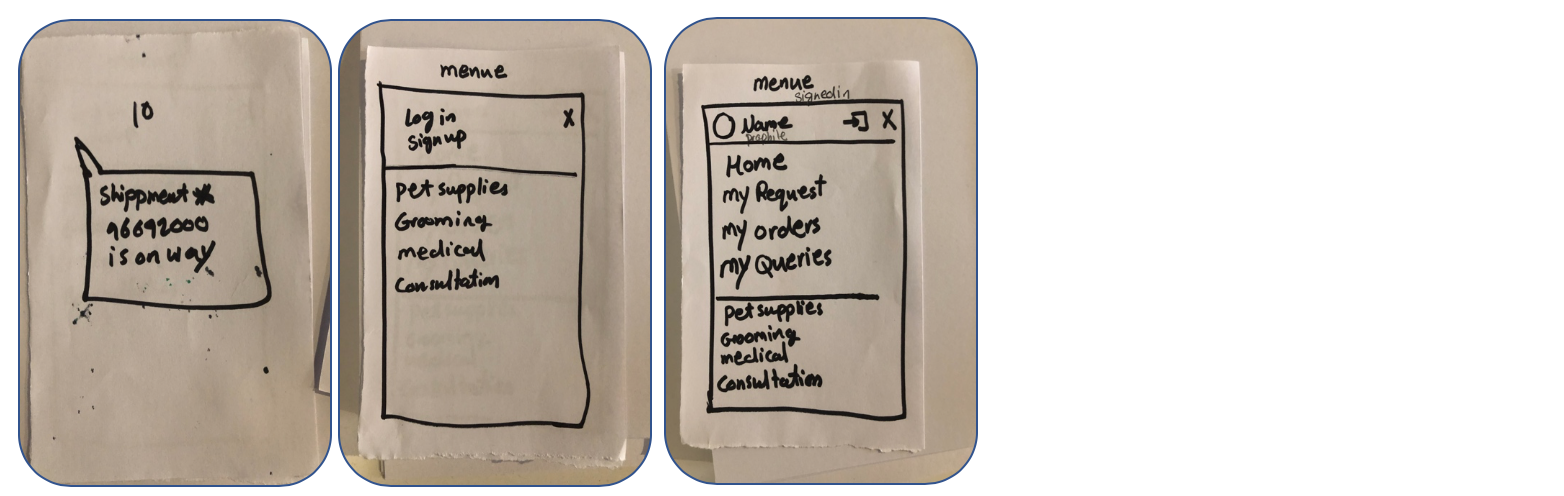 10
Shippment #
96692000
is on way
menue
Log in X
sign up
pet supplies
Grooming
medical
Consultation
menue
signedin
Name X
Home
my Request
my orders
my Queries
pet supplies
Grooming
medical
Consultation